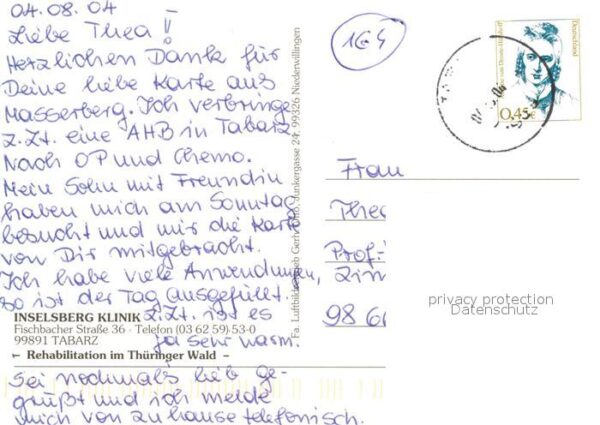 04.08.04
Liebe Thea!
Herzlichen Dank für
Deine liebe Karte aus
Masserberg. Ich verbringe
z.Zt. eine AHB in Tabarz
nach OP und Chemo.
Mein Sohn mit Freundin
haben mich am Sonntag
besucht und mir die Karte
von Dir mitgebracht.
Ich habe viele Anwendungen,
so ist der Tag ausgefüllt.
z.Zt. ist es
ja sehr warm.
INSELSBERG KLINIK
Fischbacher Straße 36 · Telefon (03 62 59) 53-0
99891 TABARZ
– Rehabilitation im Thüringer Wald –
Sei nochmals lieb ge-
grüßt und ich melde
mich von zuhause telefonisch.
Fa. Luftbildvertrieb Gerh. Otto, Junkergasse 24, 99326 Niederwillingen
164
Deutschland
0,45€
Frau
Thea
Prof.
98 66
privacy protection
Datenschutz